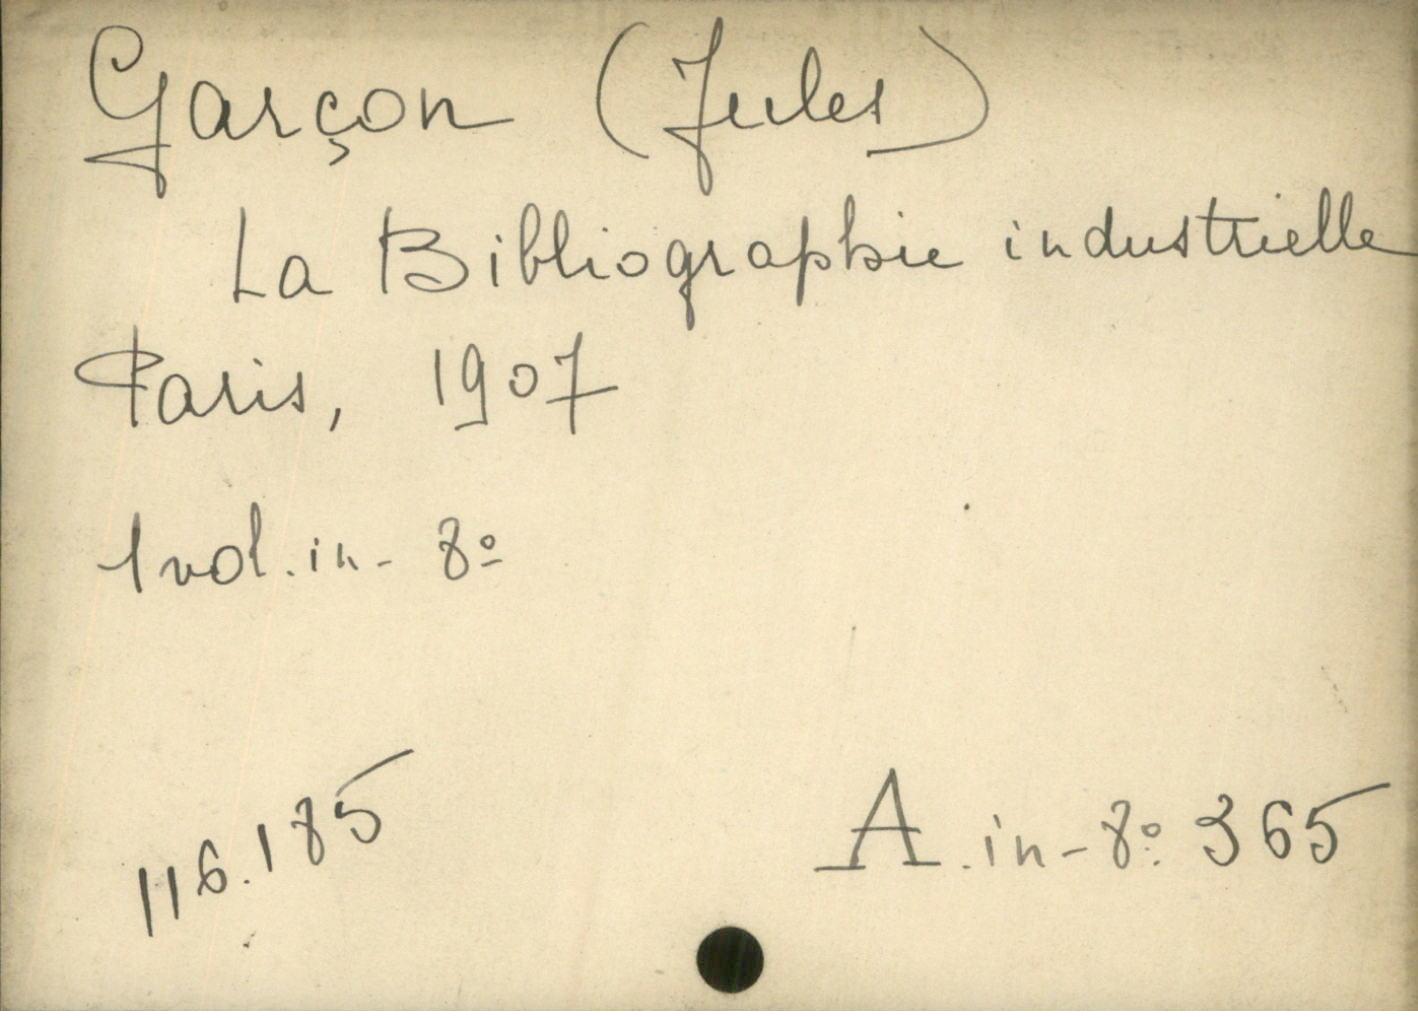 Garçon (Jules)
La Bibliographie industrielle
Paris, 1907
1 vol. in-8º
116.185
A. in-8º 365